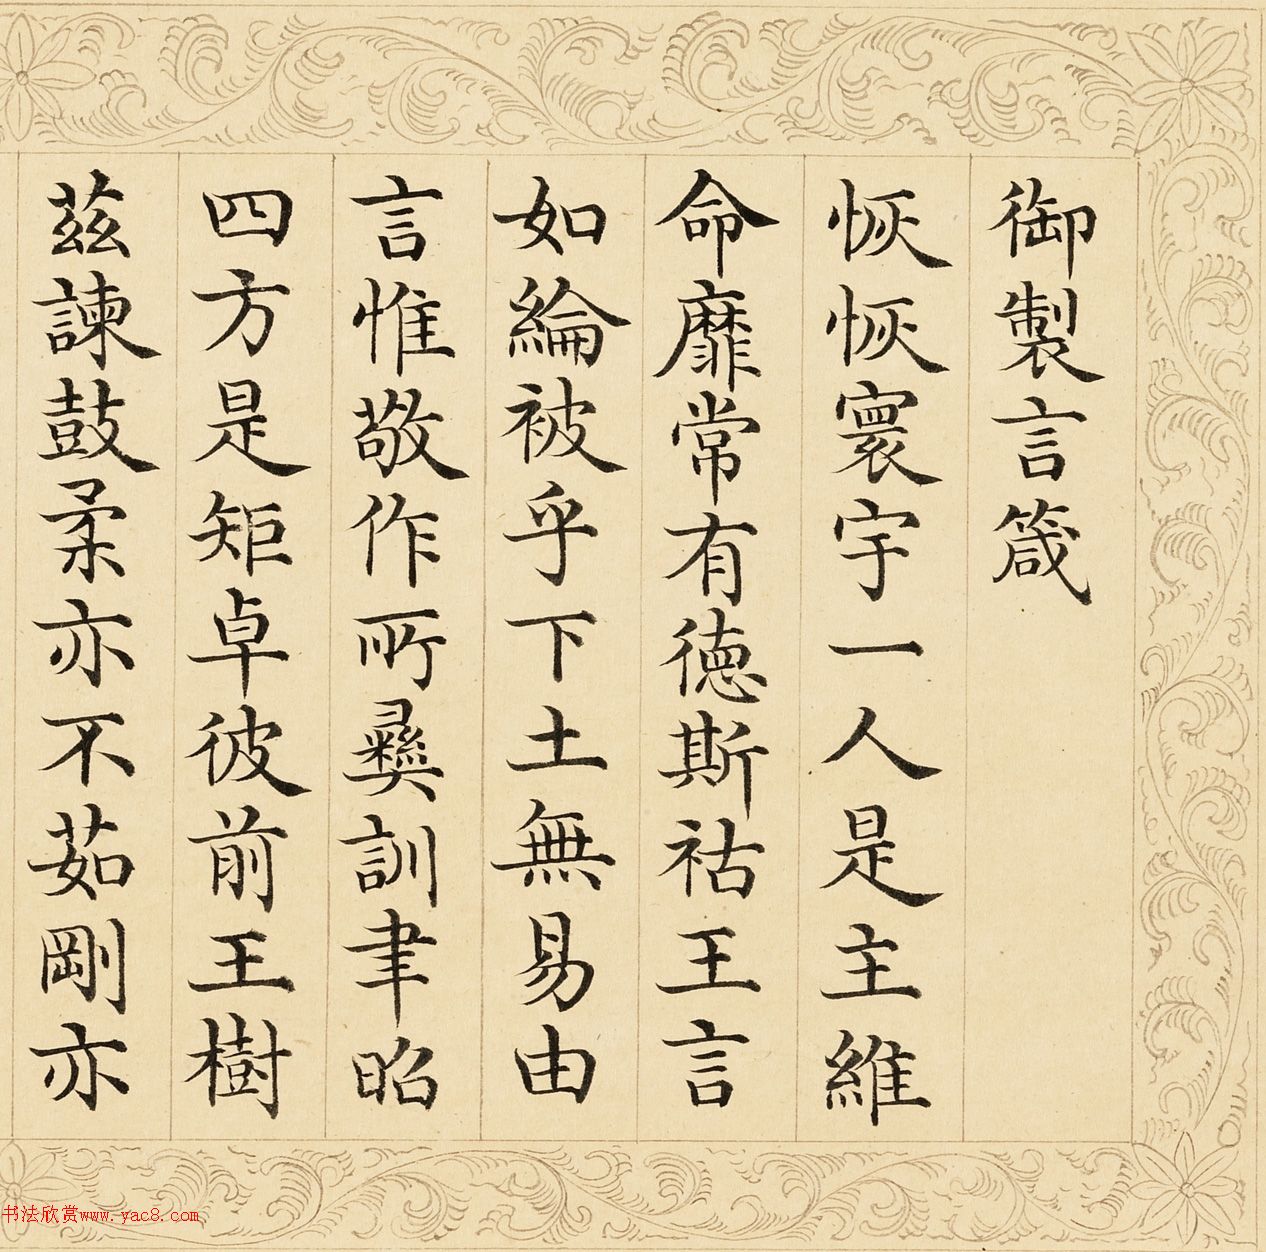 御製言箴
恢恢寰宇一人是主維
命靡常有德斯祜王言
如綸被乎下土無易由
言惟敬作所彞訓聿昭
四方是矩卓彼前王樹
茲諫鼓柔亦不茹剛亦
书法欣赏www.yac8.com